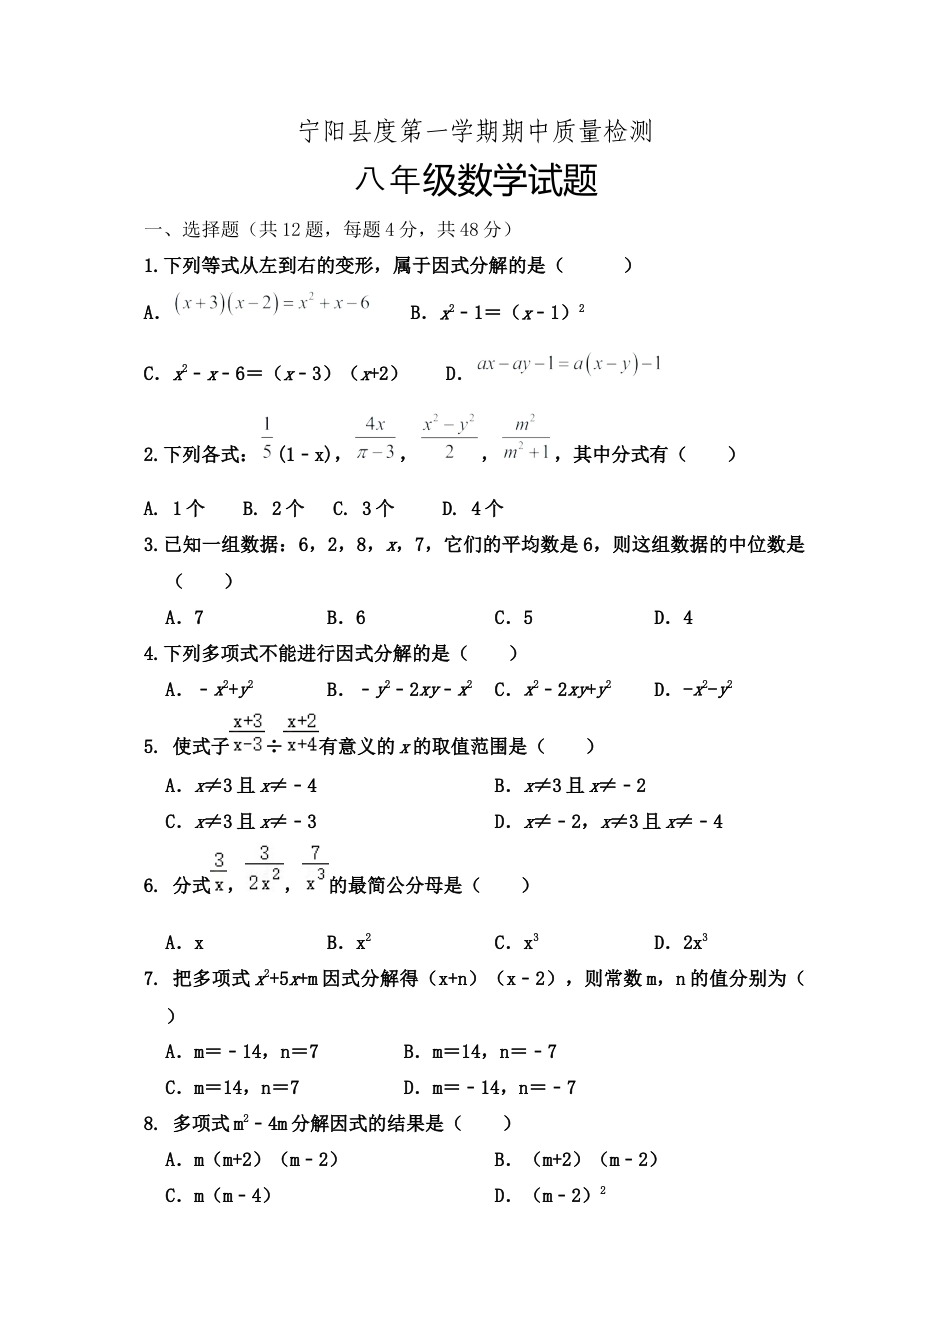 宁阳县度第一学期期中质量检测
八年级数学试题
一、选择题（共 12 题，每题 4 分，共 48 分）
1.下列等式从左到右的变形，属于因式分解的是（　　　）
A．(x+3)(x−2)=x²+x−6　　B．x²﹣1＝（x﹣1）²
C．x²﹣x﹣6＝（x﹣3）（x+2）　　D．ax−ay−1=a(x−y)−1
2.下列各式：1/5 (1﹣x)，4x/(π−3)，(x²−y²)/2，m²/(m²+1)，其中分式有（　　）
A. 1 个　　B. 2 个　　C. 3 个　　D. 4 个
3.已知一组数据：6，2，8，x，7，它们的平均数是 6，则这组数据的中位数是
（　　）
A．7　　B．6　　C．5　　D．4
4.下列多项式不能进行因式分解的是（　　）
A．﹣x²+y²　　B．﹣y²﹣2xy﹣x²　　C．x²﹣2xy+y²　　D．-x²-y²
5. 使式子(x+3)/(x-3)÷(x+2)/(x+4)有意义的 x 的取值范围是（　　）
A．x≠3 且 x≠﹣4　　B．x≠3 且 x≠﹣2
C．x≠3 且 x≠﹣3　　D．x≠﹣2，x≠3 且 x≠﹣4
6. 分式3/x，3/(2x²)，7/x³的最简公分母是（　　）
A．x　　B．x²　　C．x³　　D．2x³
7. 把多项式 x²+5x+m 因式分解得（x+n）（x﹣2），则常数 m，n 的值分别为（
）
A．m＝﹣14，n＝7　　B．m＝14，n＝﹣7
C．m＝14，n＝7　　D．m＝﹣14，n＝﹣7
8. 多项式 m²﹣4m 分解因式的结果是（　　）
A．m（m+2）（m﹣2）　　B．（m+2）（m﹣2）
C．m（m﹣4）　　D．（m﹣2）²